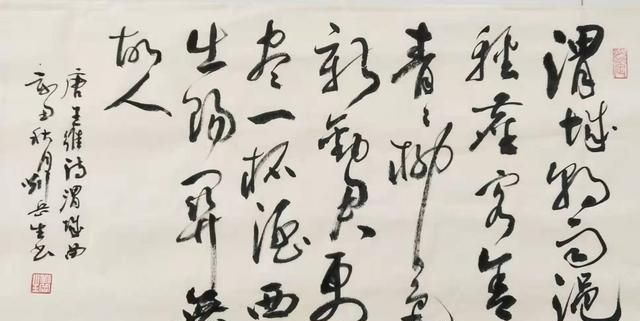 渭城朝雨浥
輕塵客舍
青青柳色
新勸君更
盡一杯酒西
出陽關無
故人
唐王維詩渭城曲
丑秋月劉岳生书